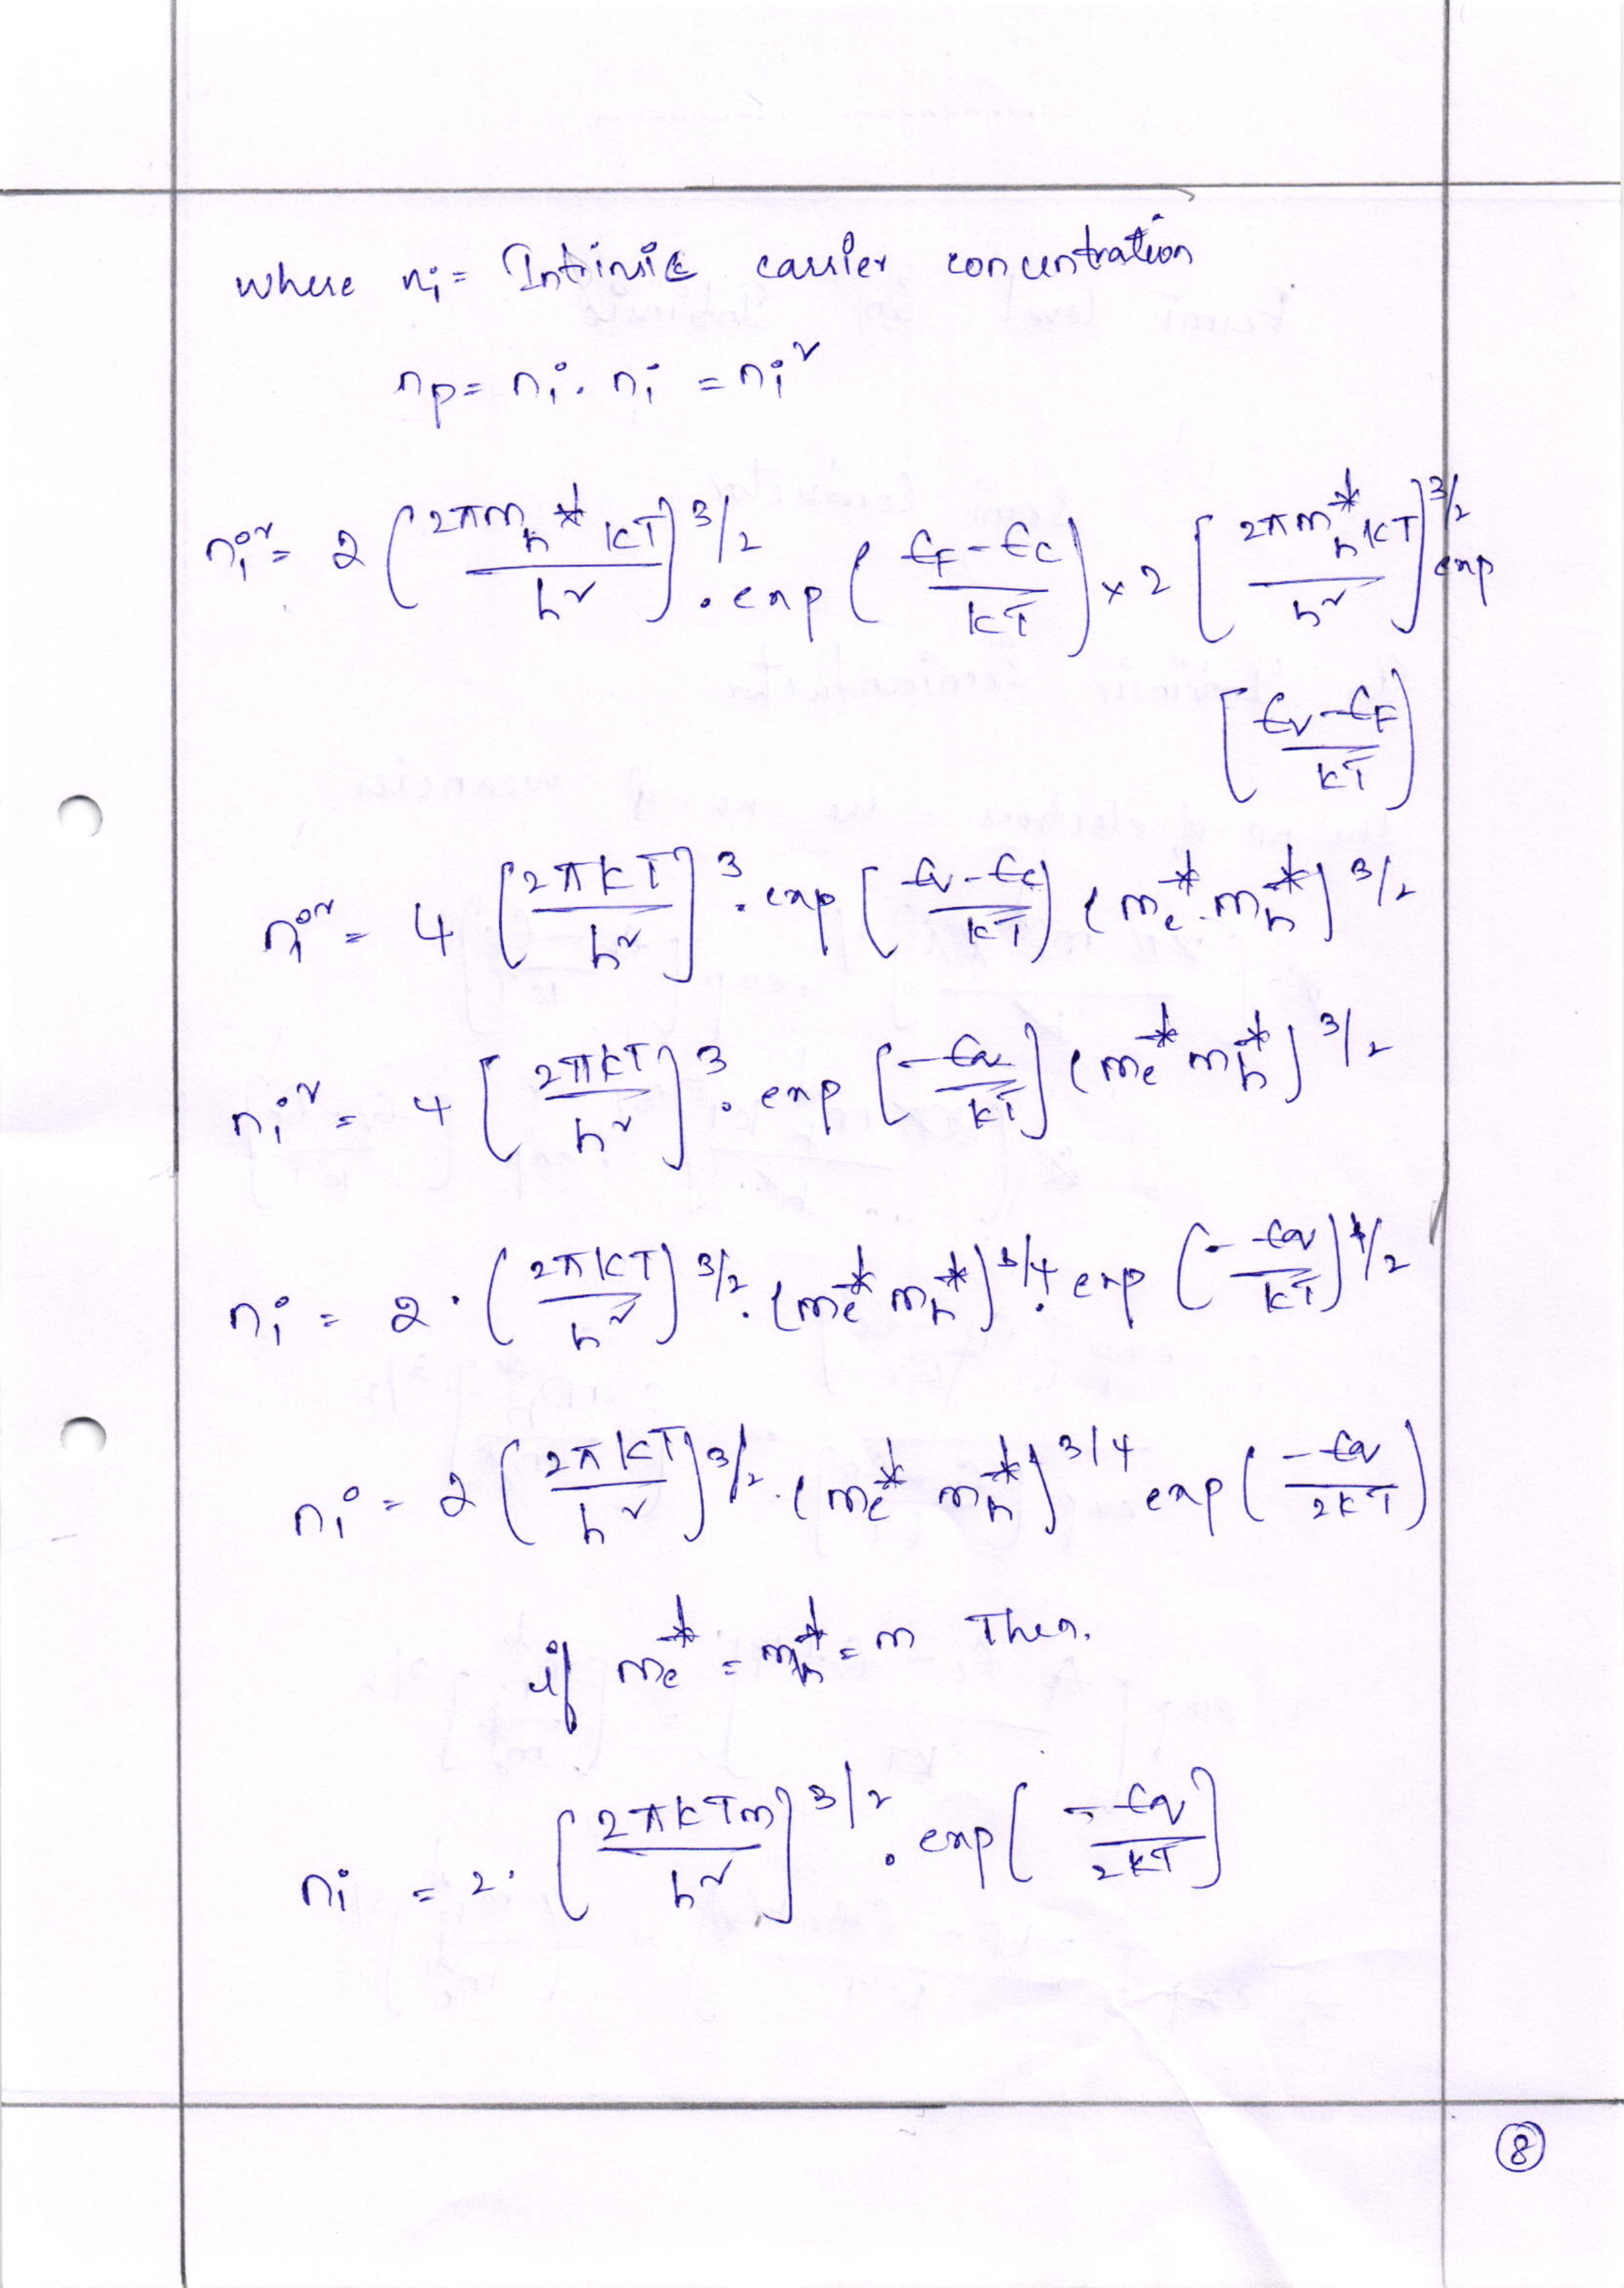 where ni = Intrinsic carrier concentration
np = ni . ni = ni²
ni² = 2 (2πm*h kT / h²]^3/2 . exp ( EF - EC / kT ) × 2 [ 2πm*h kT / h² ]^3/2 exp
[ EV - EF / kT )
ni² = 4 [ 2πkT / h² ]^3 . exp [ EV - EC / kT ) ( me* . mh* )^3/2
ni² = 4 [ 2πkT / h² ]^3 . exp [ -Eg / kT ] ( me* mh* )^3/2
ni = 2 . ( 2πkT / h² )^3/2 . ( me* mh* )^3/4 . exp ( - Eg / kT )^1/2
ni = 2 ( 2πkT / h² )^3/2 . ( me* mh* )^3/4 exp ( -Eg / 2kT )
if me* = mh* = m Then.
ni = 2 . [ 2πkTm / h² ]^3/2 . exp [ -Eg / 2kT ]
8